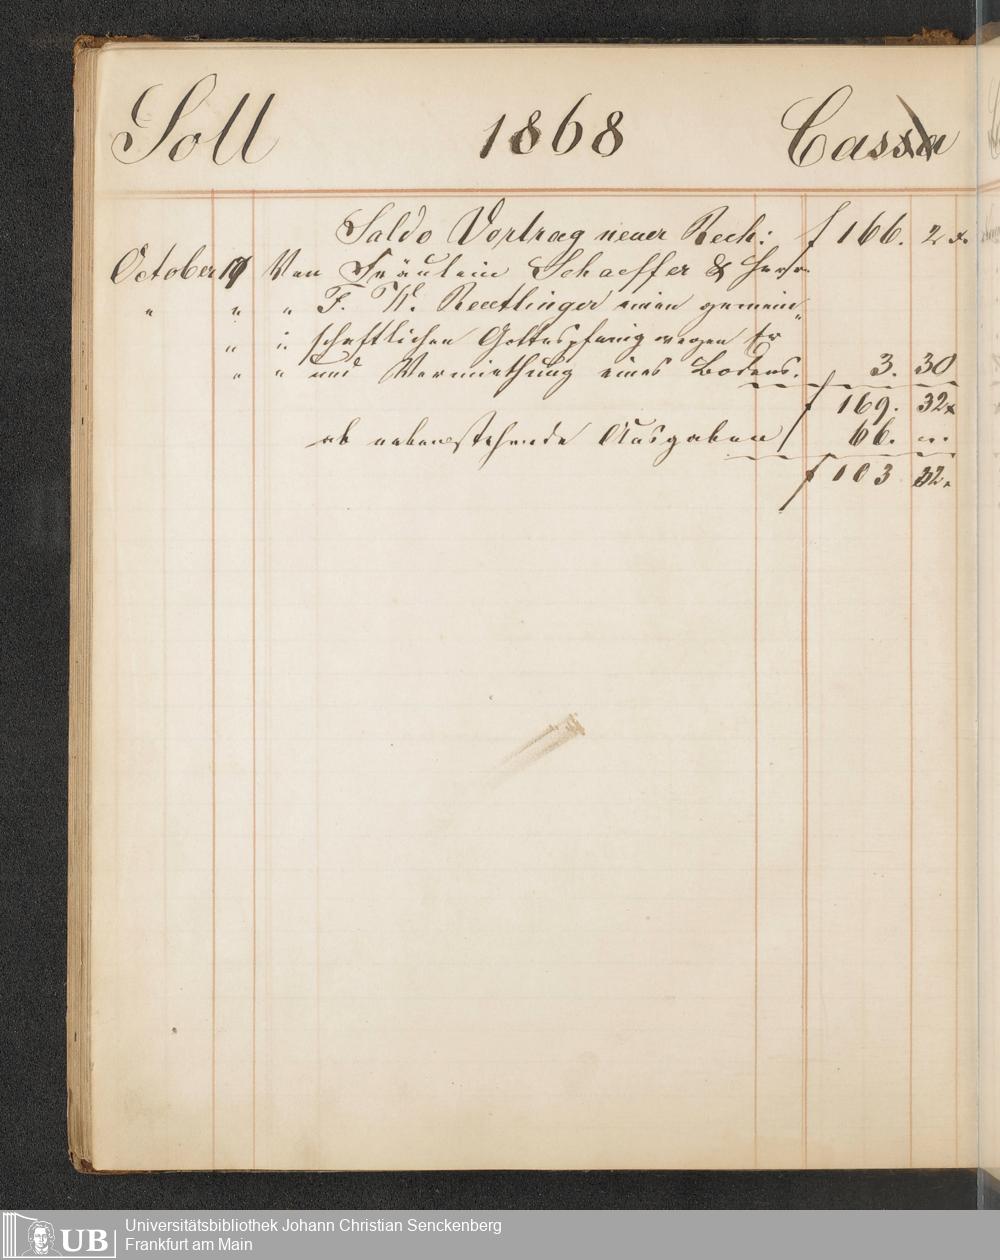 Soll 1868 Cassa
Saldo Vortrag neuer Rech: f 166. 2 x.
October 19 Von Fräulein Schaeffer & Herrn
" " " F. W. Reutlinger einen gemein„
" " schaftlichen Gottespfenig wegen
" " und Vermiethung eines Bodens. 3. 30
f 169. 32x
ab nebenstehende Ausgaben f 66. "."
f 103 32.
UB
Universitätsbibliothek Johann Christian Senckenberg
Frankfurt am Main